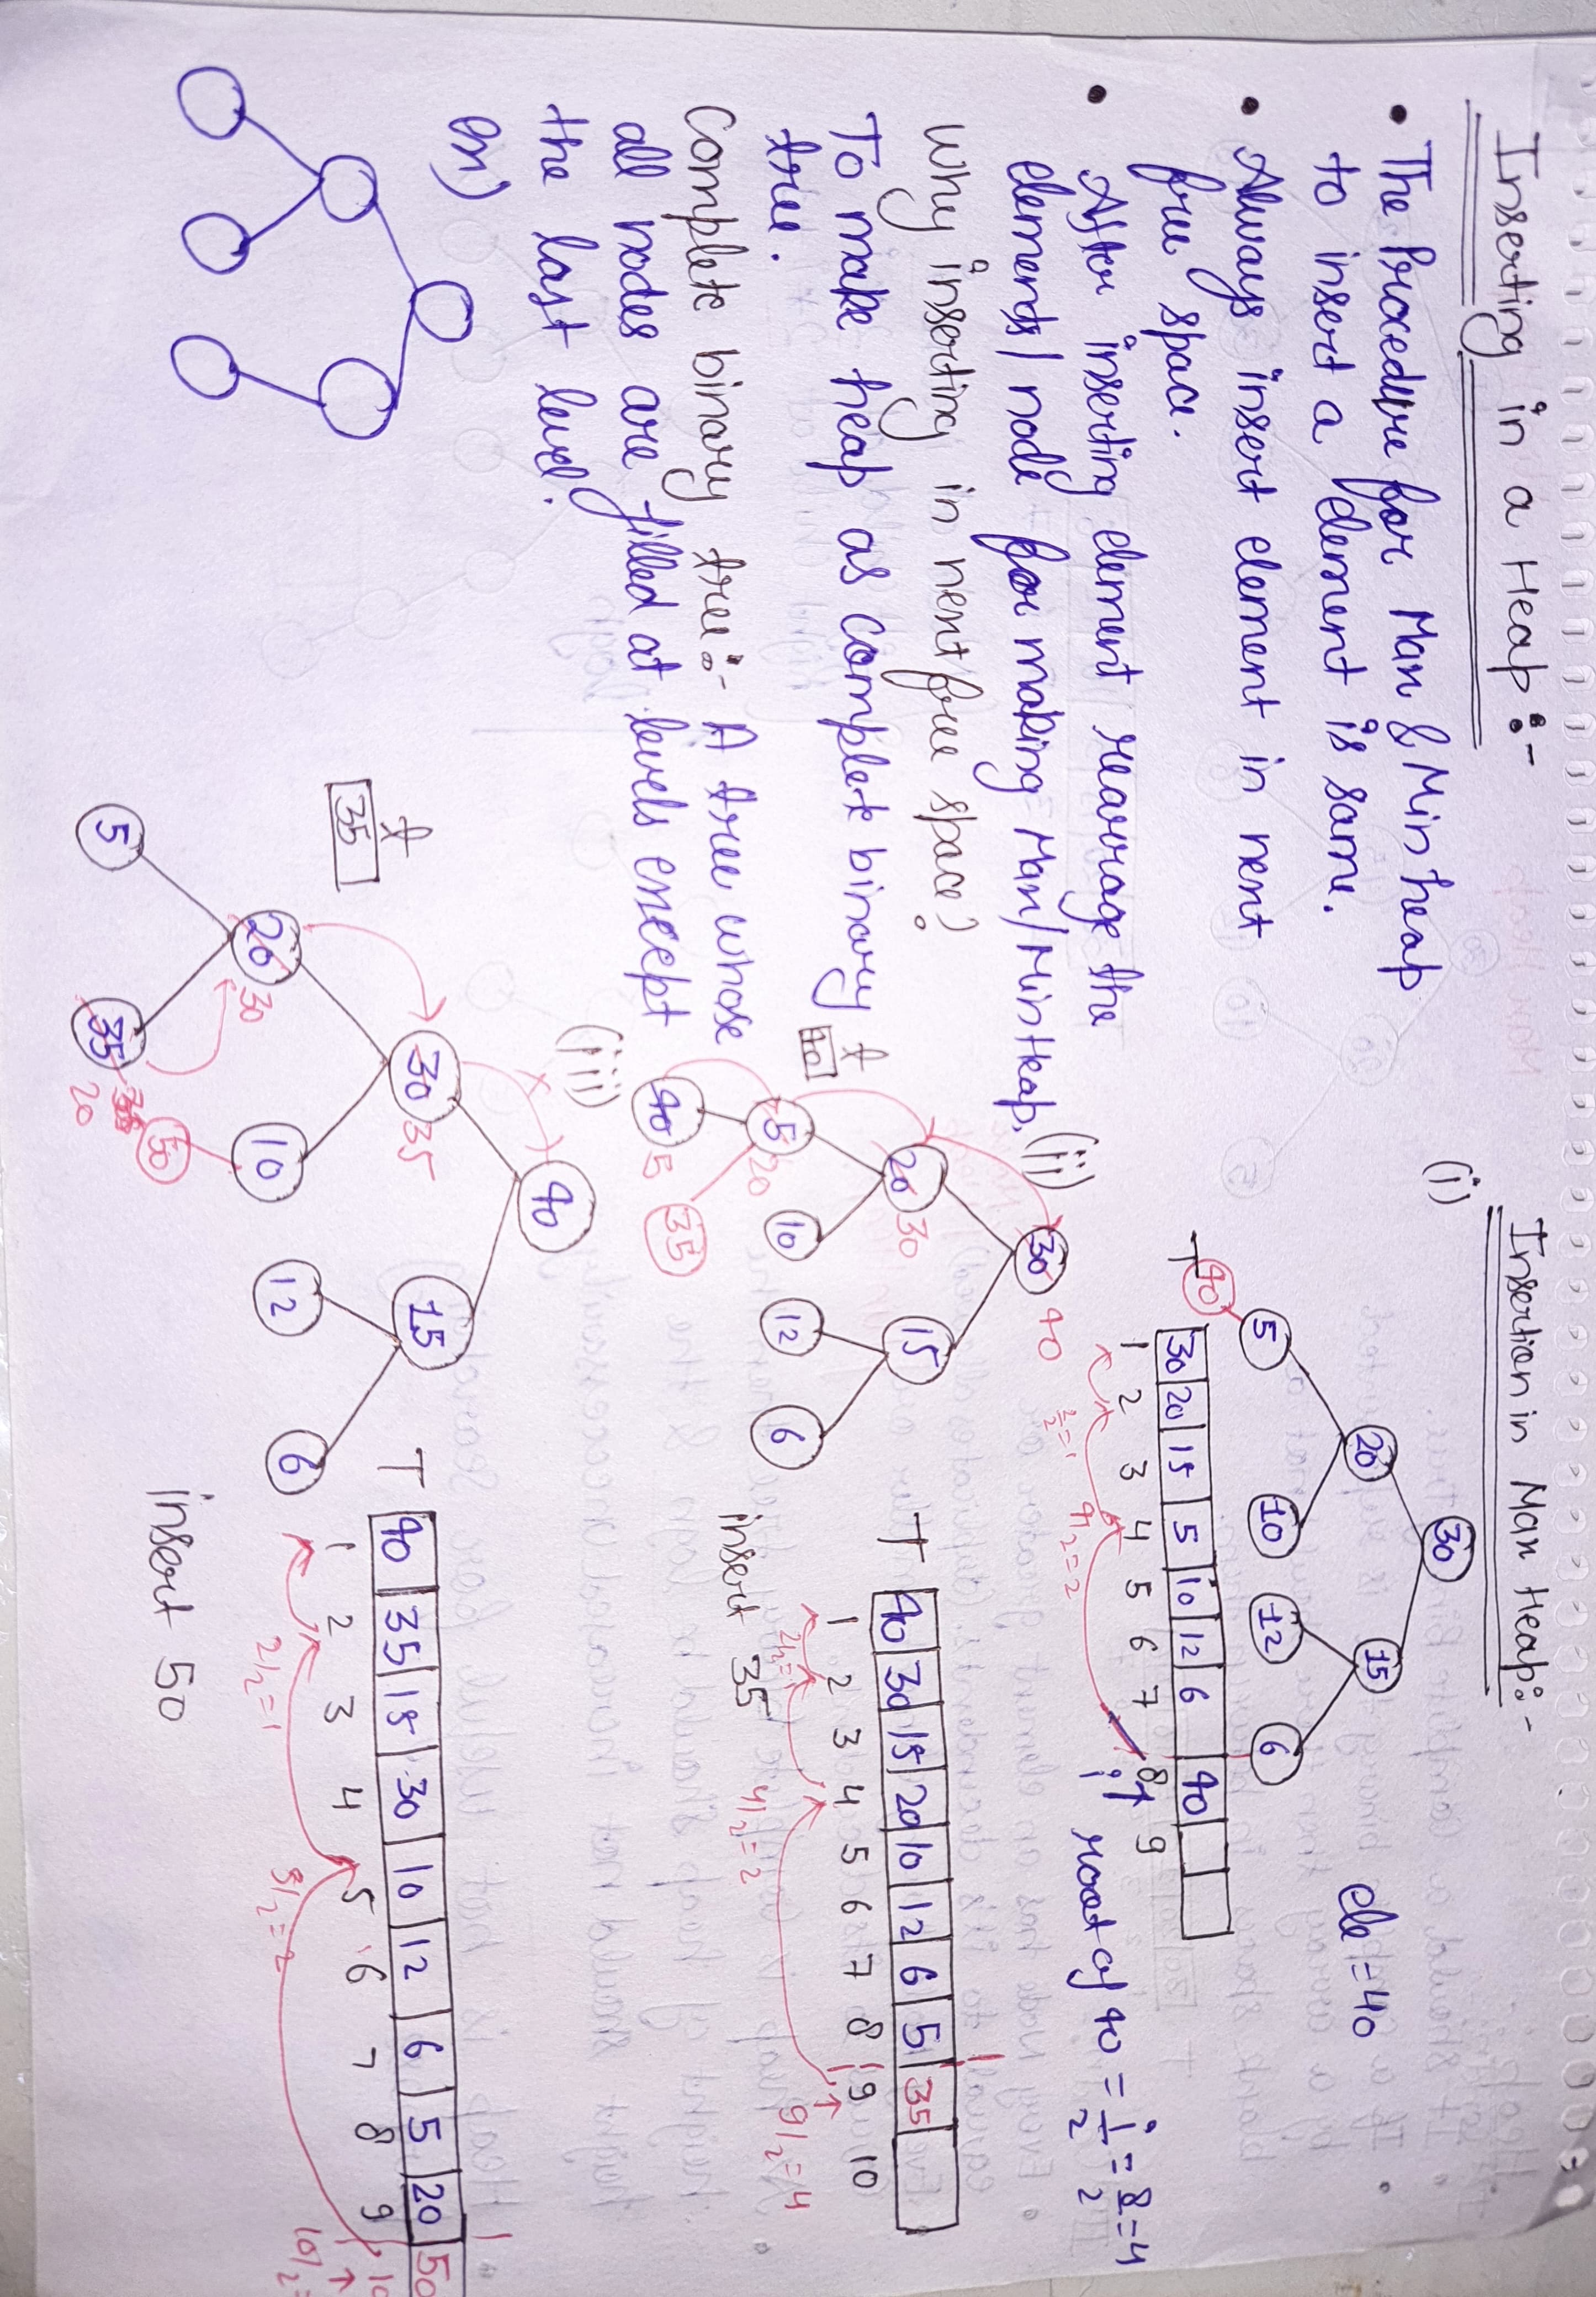 Inserting in a Heap :-
• The Procedure for Max & Min heap
to insert a element is same.
• Always insert element in next
free space.
• After inserting element rearrage the
elements/ node for making Max/Min Heap.
Why inserting in next free space?
To make heap as complete binary
tree.
Complete binary tree:- A tree whose
all nodes are filled at levels except
the last level.
ex)
Insertion in Max Heap:-
(i)
30
20 15
ele = 40
5 10 12 6
40
T 30 20 15 5 10 12 6 40
1 2 3 4 5 6 7 8 9
2/2=1 4/2=2 i root of 40 = i/2 = 8/2 = 4
(ii)
30 40
20 30 15
t
40
5 20 10 12 6
40 5 35
T 40 30 15 20 10 12 6 5 35
1 2 3 4 5 6 7 8 9 10
2/2=1 4/2=2 9/2=4
insert 35
(iii)
40
30 35 15
t
35
20 30 10 12 6
50
5 35 20
T 40 35 15 30 10 12 6 5 20 50
1 2 3 4 5 6 7 8 9 10
2/2=1 5/2=2 10/2=
insert 50